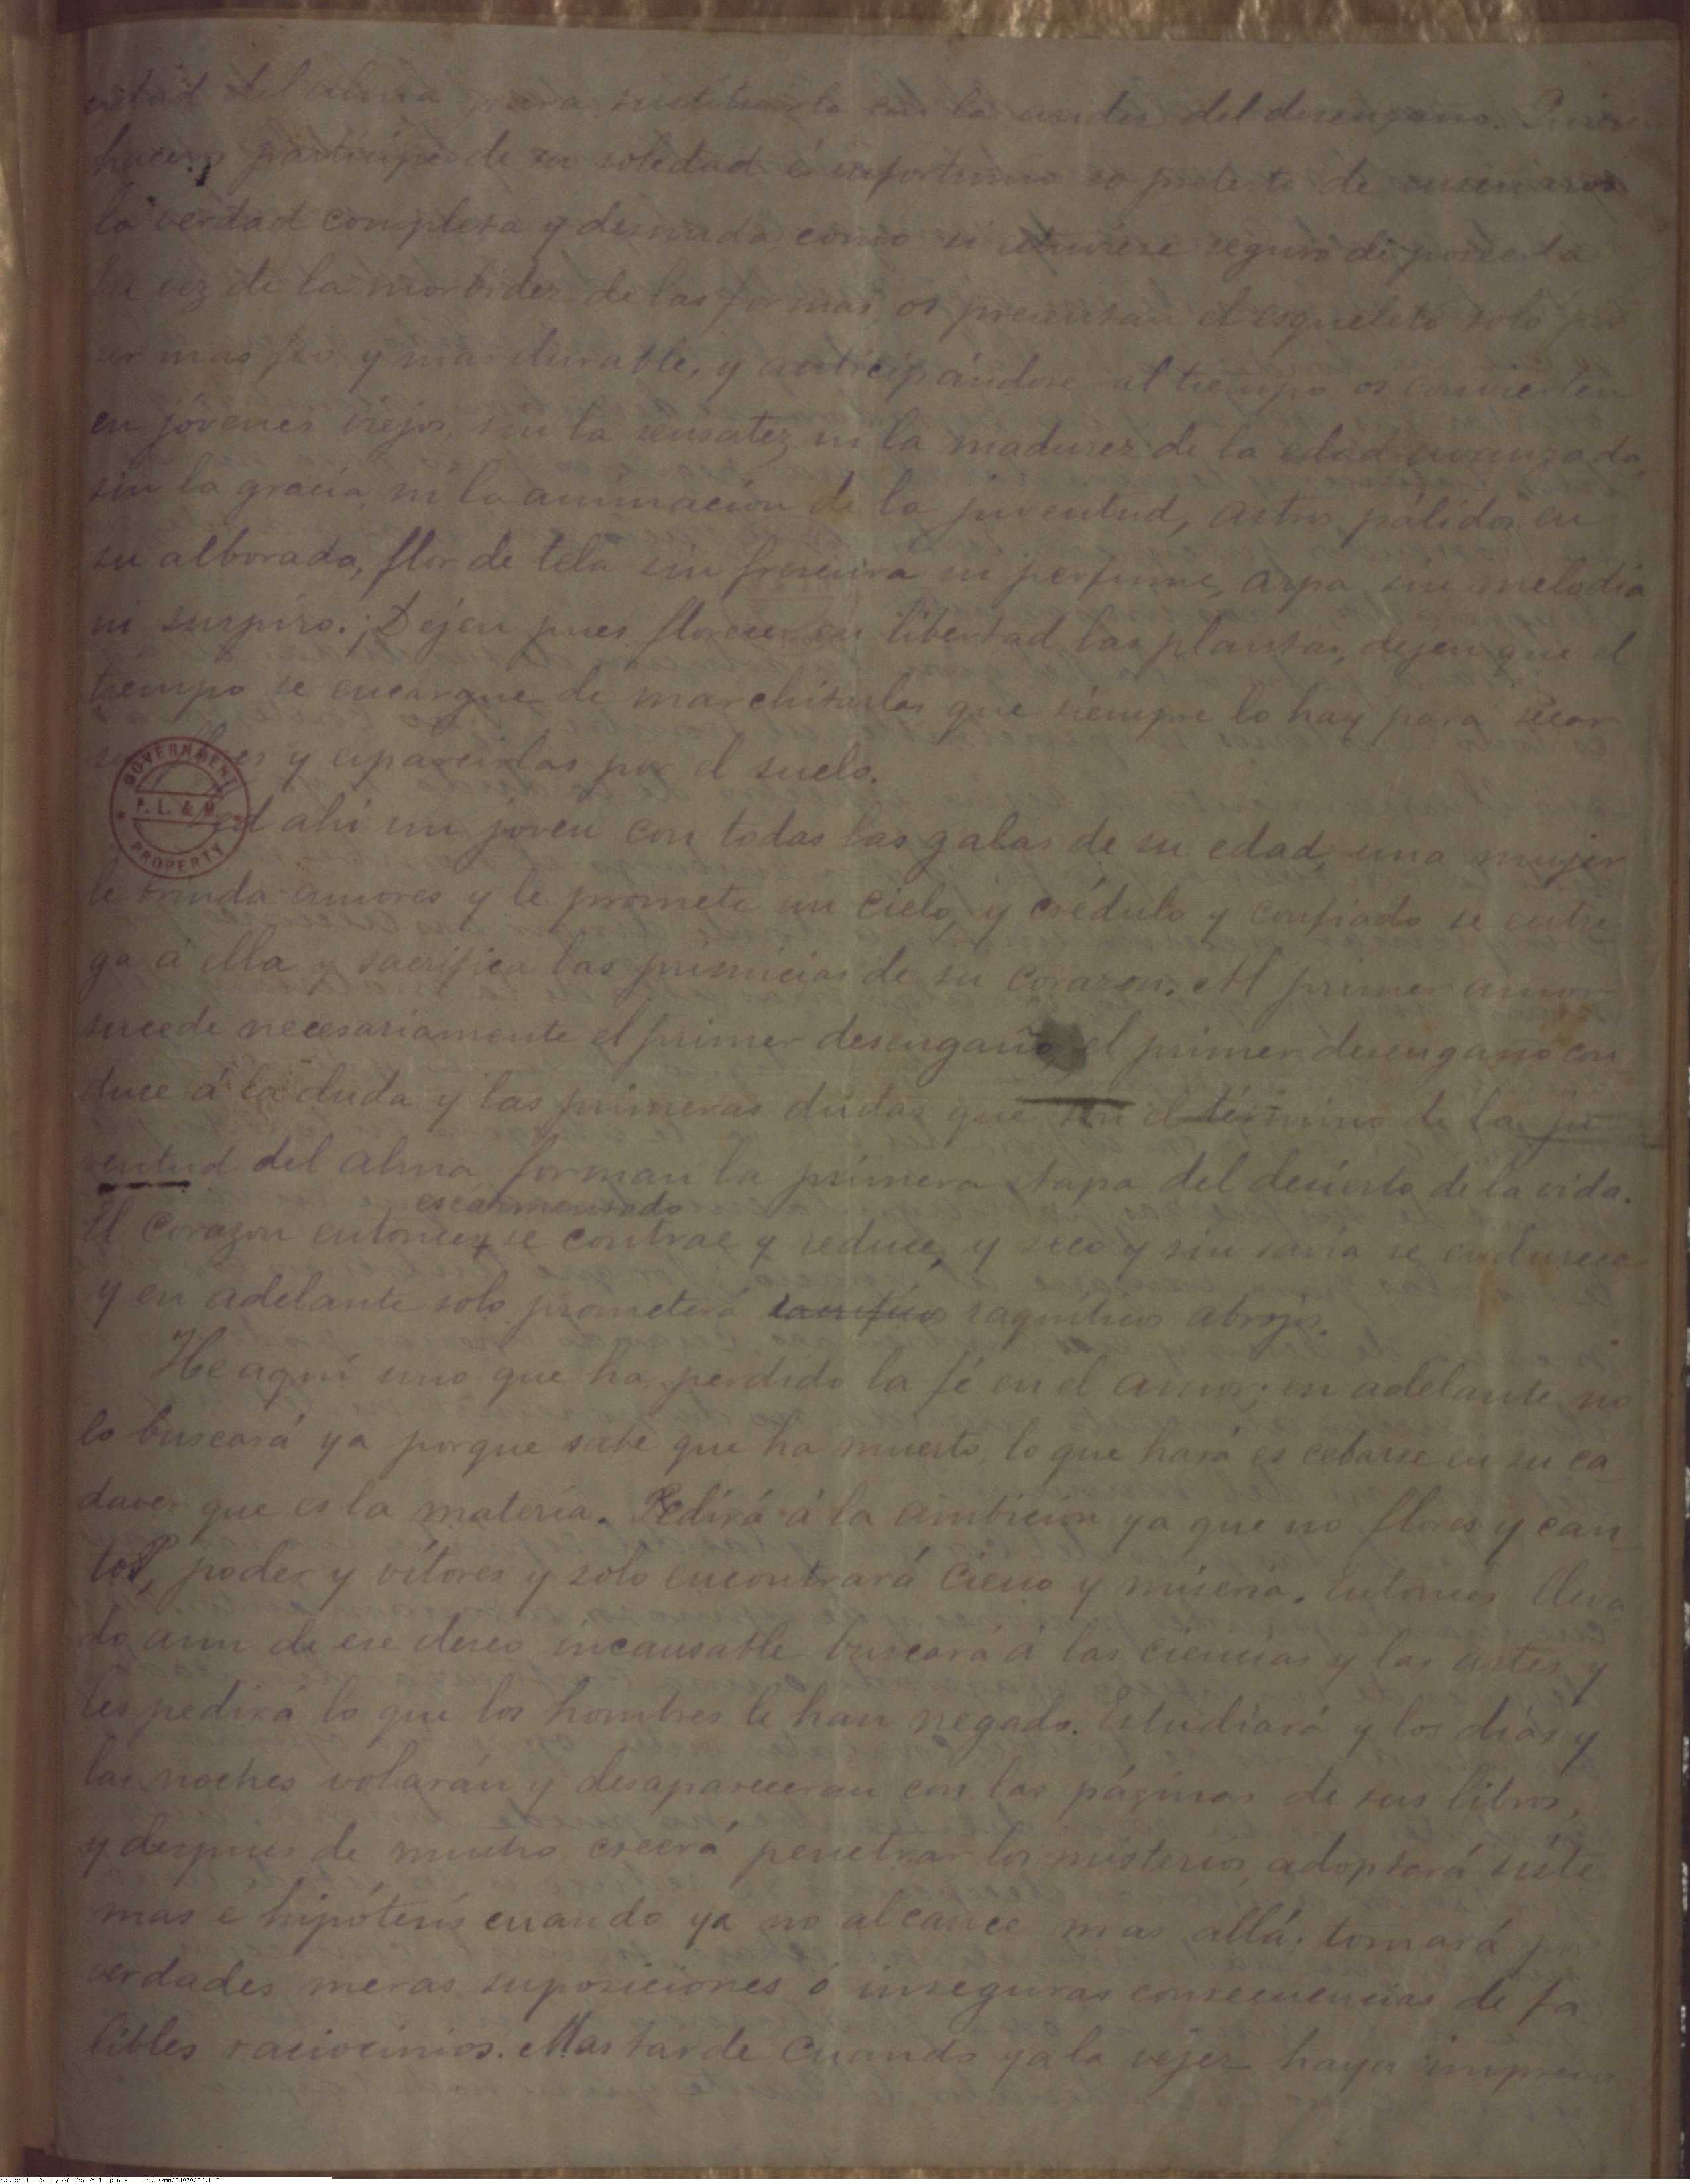 del alma para la del desengaño.
haceros partícipe de su soledad é infortunio so pretesto de enseñaros
la verdad completa y desnuda, como si estuviese seguro de poseerla
En vez de la morbidez de las formas, os presentan el esqueleto solo por
ser mas feo y mas durable, y anticipándose al tiempo os convierten
en jóvenes viejos, sin la sensatez ni la madurez de la edad avanzada,
sin la gracia ni la animacion de la juventud, astros pálidos en
su alborada, flor de tela sin frescura ni perfume, arpa sin melodía
ni suspiro. ¡Dejen pues florecer en libertad las plantas, dejen que el
tiempo se encargue de marchitarlas que siempre lo hay para secar
y esparcirlas por el suelo.
GOVERNMENT
P. L. & M.
PROPERTY
ahí un joven con todas las galas de su edad, una mujer
le brinda amores y le promete un cielo, y crédulo y confiado se entre
ga á ella y sacrifica las primicias de su corazon. Al primer amor
sucede necesariamente el primer desengaño, el primer desengaño con
duce á la duda y las primeras dudas que son el término de la ju
ventud del alma forman la primera etapa del desierto de la vida.
escarmentado
El corazon entonces, se contrae y reduce, y seco y sin savia se endurece
y en adelante solo prometerá sacrificios raquíticos abrojos.
He aquí uno que ha perdido la fé en el amor; en adelante no
lo buscará ya porque sabe que ha muerto, lo que hará es cebarse en su ca
daver que es la materia. Pedirá á la ambicion ya que no flores y can
tos, poder y vítores y solo encontrará cieno y miseria. Entonces lleva
do aun de ese deseo incansable buscará á las ciencias y las artes y
les pedirá lo que los hombres le han negado. Estudiará y los dias y
las noches volarán y desaparecerán con las páginas de sus libros,
y despues de mucho creerá penetrar los misterios, adoptará siste
mas e hipótesis cuando ya no alcance mas allá: tomará por
verdades meras suposiciones ó inseguras consecuencias de fa
libles raciocinios. Mas tarde cuando ya la vejez haya impreso